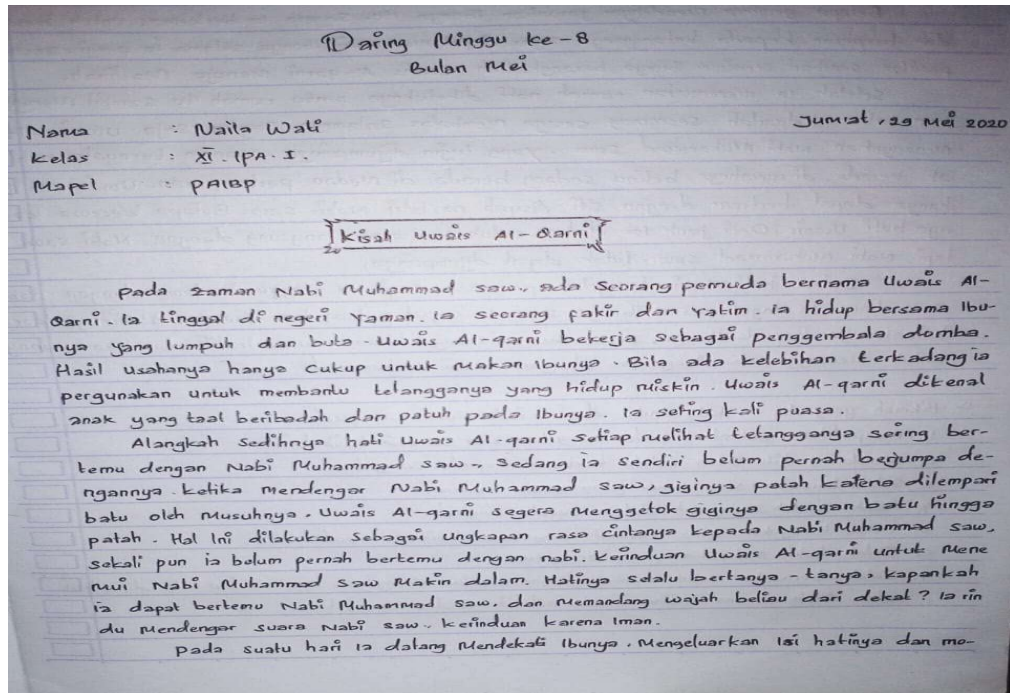 Daring Minggu ke-8
Bulan Mei
Jum'at, 29 Mei 2020
Nama : Naila Wati
Kelas : XI. IPA. I.
Mapel : PAIBP
Kisah Uwais Al-Qarni
Pada zaman Nabi Muhammad saw., ada seorang pemuda bernama Uwais Al-
Qarni. Ia tinggal di negeri Yaman. Ia seorang fakir dan yatim. ia hidup bersama Ibu-
nya yang lumpuh dan buta. Uwais Al-qarni bekerja sebagai penggembala domba.
Hasil usahanya hanya cukup untuk makan Ibunya. Bila ada kelebihan terkadang ia
pergunakan untuk membantu tetangganya yang hidup miskin. Uwais Al-qarni dikenal
anak yang taat beribadah dan patuh pada Ibunya. Ia sering kali puasa.
Alangkah sedihnya hati Uwais Al-qarni setiap melihat tetangganya sering ber-
temu dengan Nabi Muhammad saw., sedang ia sendiri belum pernah berjumpa de-
ngannya. Ketika mendengar Nabi Muhammad saw, giginya patah karena dilempari
batu oleh musuhnya, Uwais Al-qarni segera menggetok giginya dengan batu hingga
patah. Hal Ini dilakukan sebagai ungkapan rasa cintanya kepada Nabi Muhammad saw,
sekali pun ia belum pernah bertemu dengan nabi. Kerinduan Uwais Al-qarni untuk mene
mui Nabi Muhammad saw makin dalam. Hatinya selalu bertanya-tanya, kapankah
ia dapat bertemu Nabi Muhammad saw, dan memandang wajah beliau dari dekat? Ia rin
du mendengar suara Nabi saw., kerinduan karena Iman.
Pada suatu hari ia datang mendekati Ibunya. Mengeluarkan Isi hatinya dan mo-